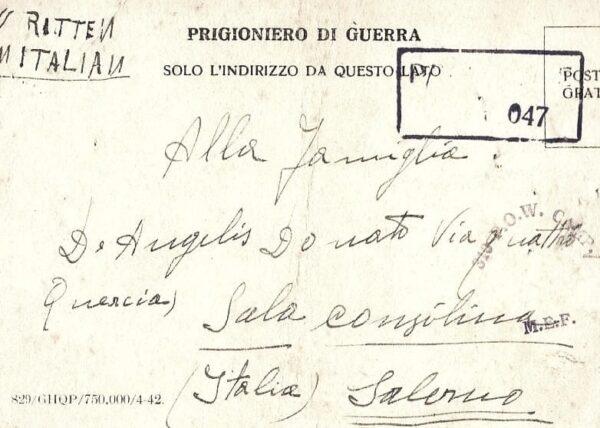 RITTEN
N ITALIAN
PRIGIONIERO DI GUERRA
SOLO L'INDIRIZZO DA QUESTO LATO
POST
GRAT
P/
047
Alla Famiglia
De Angelis Donato Via quattro
Quercia)
Sala consilina
P.O.W. CAMP.
M.E.F.
(Italia) Salerno
829/GHQP/750,000/4-42.